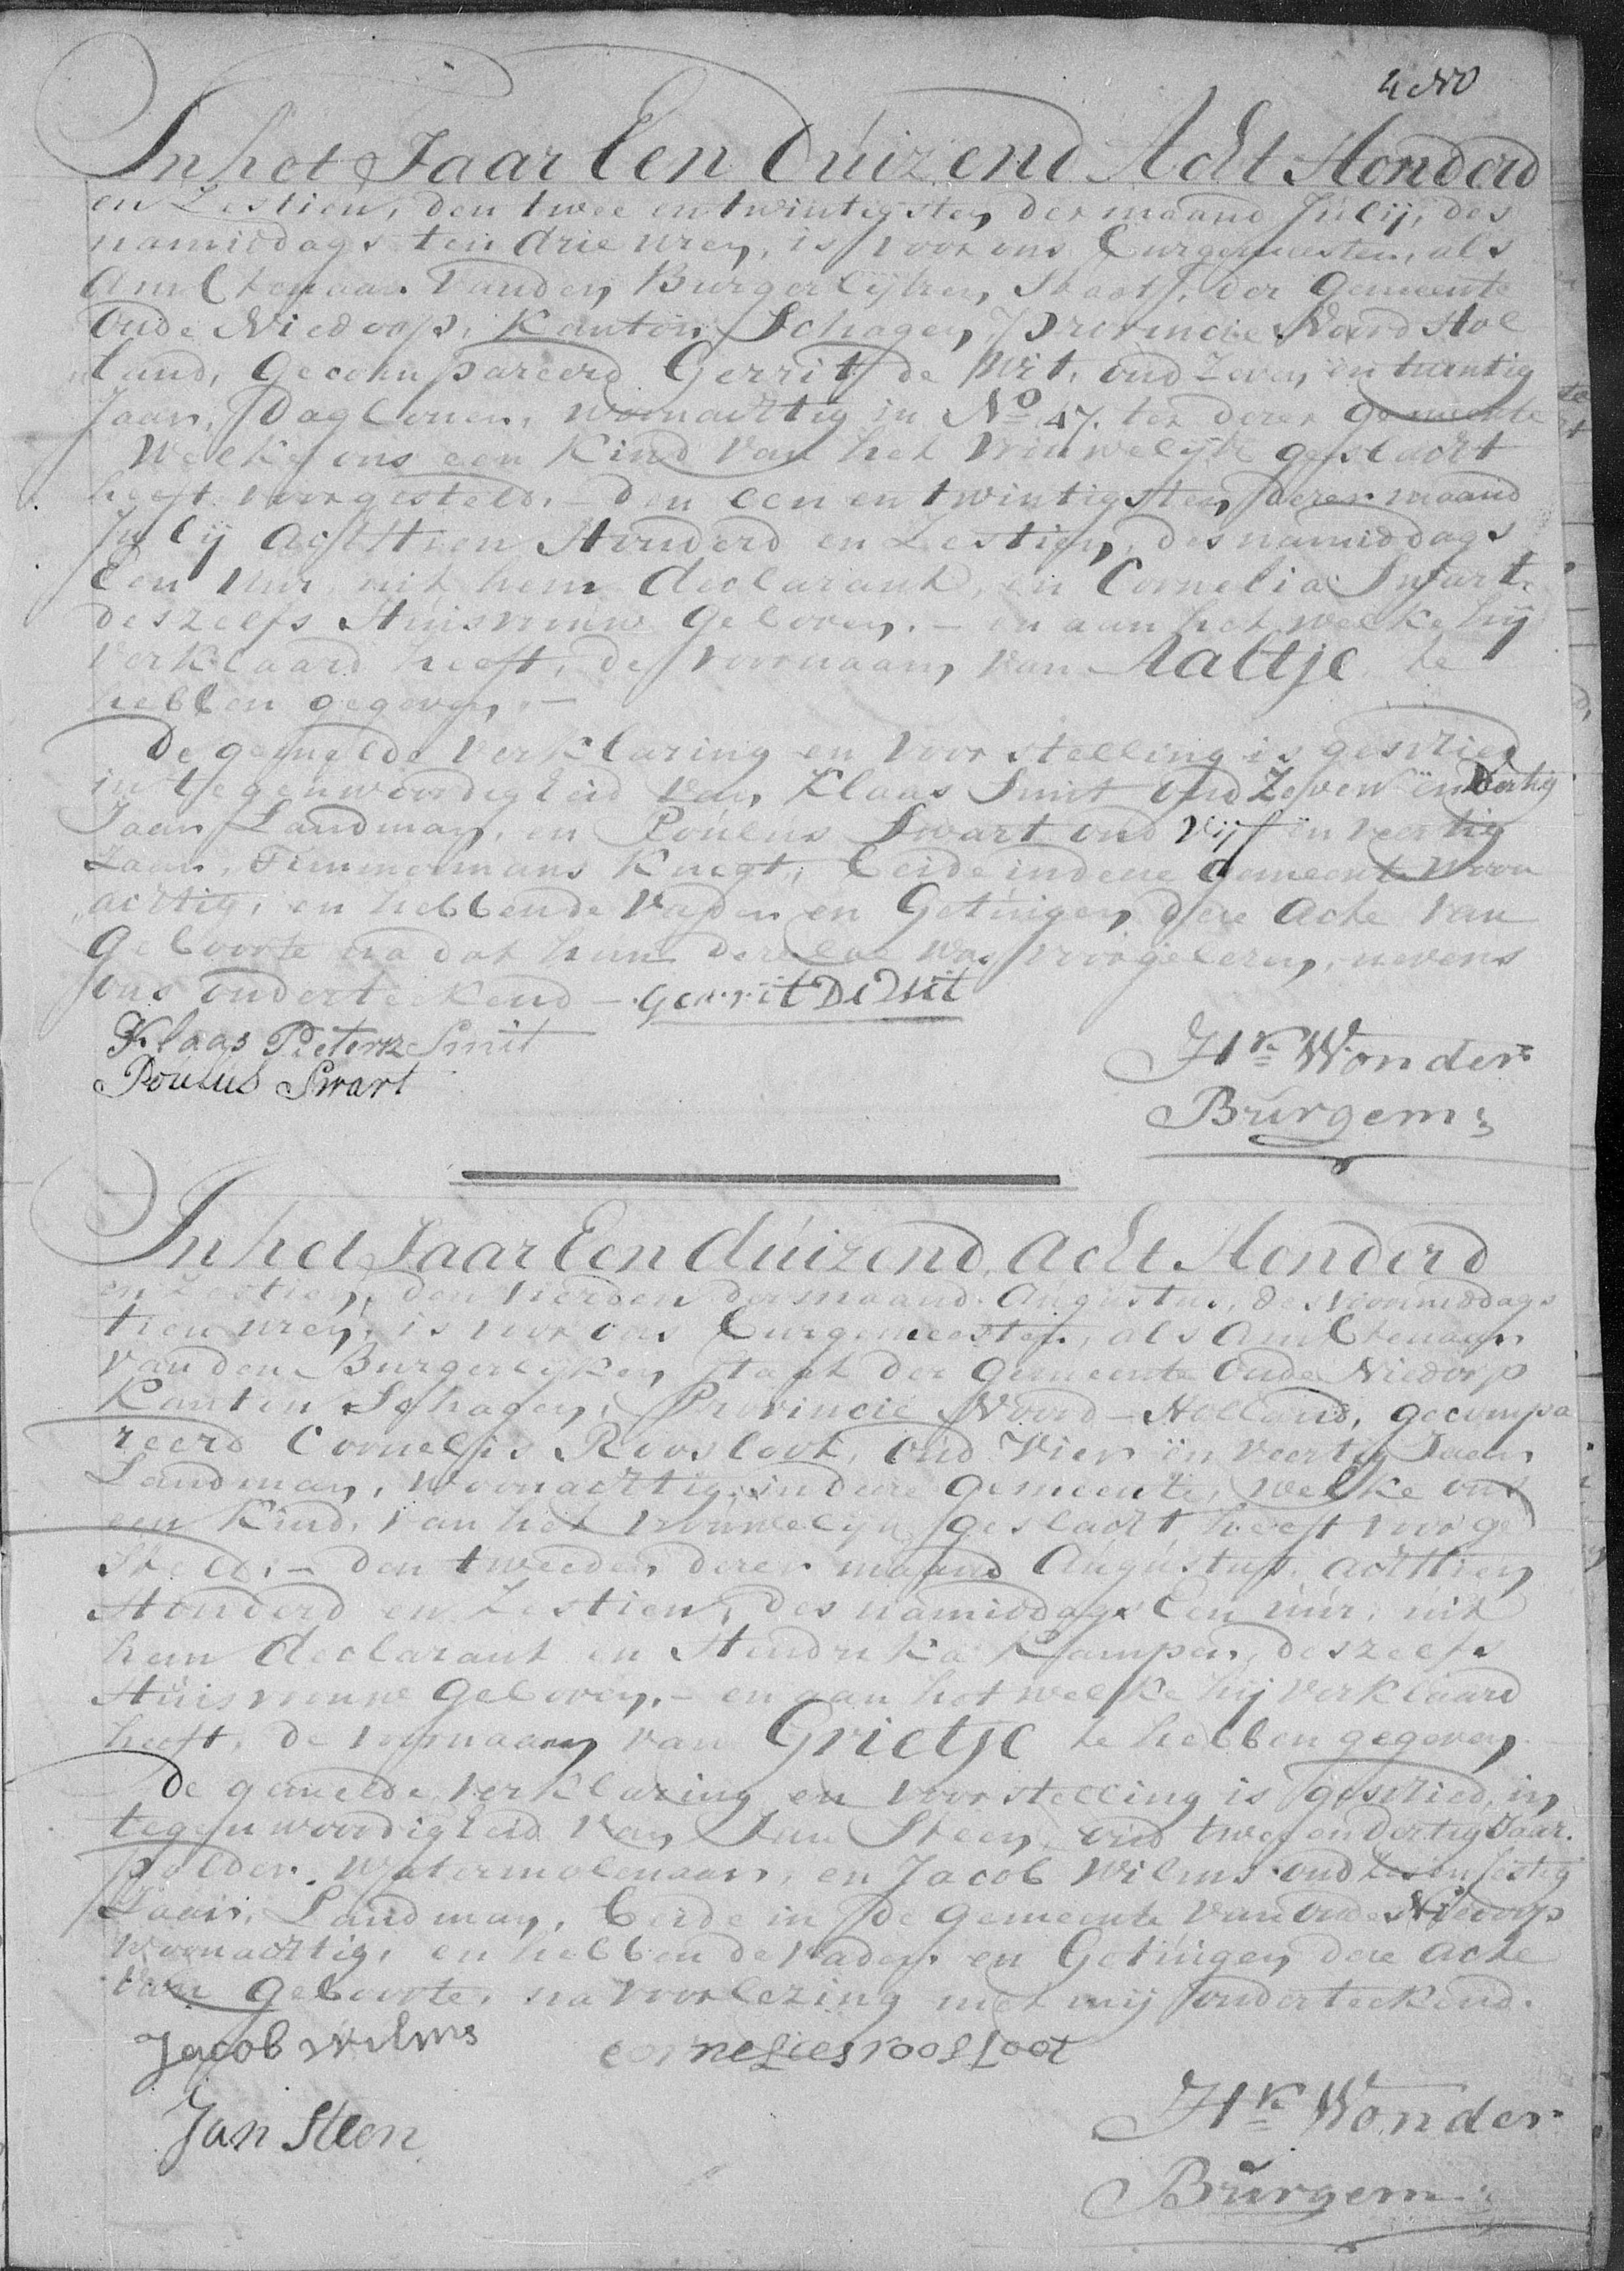 In het Jaar Een Duizend Acht Honderd
en Zestien, den twee en twintigsten der maand Julij, des
namiddags ten drie uren, is voor ons Burgemeester, als
Ambtenaar van den Burgerlijken Staat, der Gemeente
Oude Niedorp, Kanton Schagen, Provincie Noord Hol
land, Gecompareerd Gerrit de Wit, oud Zeven en twintig
Jaar, Dagloner, woonachtig in No 47. ter dezer gemeente
Welke ons een Kind van het vrouwelijk geslacht
heeft voorgesteld, - den een en twintigsten dezer maand
Julij Achttien Honderd en Zestien, des namiddags
Een uur, uit hem declarant, en Cornelia Swart,
deszelfs Huisvrouw geboren. - en aan het welke hij
verklaard heeft, de voornaam van Aaltje te
hebben gegeven. -
De gemelde verklaring en voorstelling is geschied
in tegenwoordigheid van Klaas Smit oud Zeven en Dertig
Jaar Landman, en Poulus Swart oud vijf en veertig
Jaar, Timmermans Knegt, beide in deze Gemeente woon
achtig, en hebben de Vader en Getuigen deze Acte van
Geboorte na dat hun dezelve was voorgelezen, nevens
ons onderteekend - Gerrit De Wit
Klaas Pietersz Smit
Poulus Swart
Hk Wonder
Burgemr
In het Jaar Een duizend Acht Honderd
en Zestien, den vierden der maand Augustus, des voormiddags
tien uren, is voor ons Burgemeester, als Ambtenaar
van den Burgerlijken staat der Gemeente Oude Niedorp
Kanton Schagen, Provincie Noord-Holland, gecompa
reerd Cornelis Roosloot, oud Vier en veertig Jaar
Landman, woonachtig in deze Gemeente, welke ons
een Kind, van het vrouwelijk geslacht heeft voorge
steld, - den tweeden dezer maand Augustus, achttien
Honderd en Zestien, des namiddags Een uur, uit
hem declarant en Hendrika Kamper, deszelfs
Huisvrouw geboren. - en aan het welke hij verklaard
heeft, de voornaam van Grietje te hebben gegeven
De gemelde verklaring en voorstelling is geschied, in
tegenwoordigheid van Jan Steen, oud twee en dertig Jaar.
polder Watermolenaar, en Jacob Wilms oud Zes en sestig
Jaar, Landman, beide in de gemeente van Oude Niedorp
woonachtig, en hebben de vader en Getuigen deze acte
van geboorte, na voorlezing met mij onderteekend.
Jacob Wilms cornelies roosloot
Jan Steen
Hk Wonder
Burgem